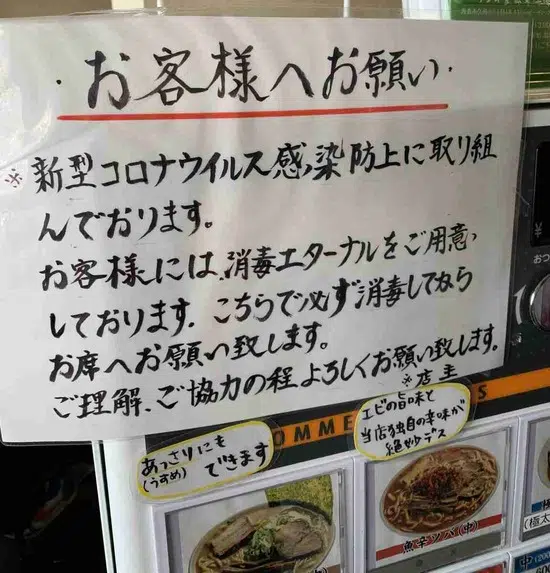 ・お客様へお願い・
※新型コロナウイルス感染防止に取り組
んでおります。
お客様には、消毒エターナルをご用意
しております。こちらで必ず消毒してから
お席へお願い致します。
ご理解、ご協力の程よろしくお願い致します。
※店主
あっさりにも
(うすめ)できます
エビの旨味と
当店独自の辛味が
絶妙デス
OMME
S
魚辛ソバ(中)